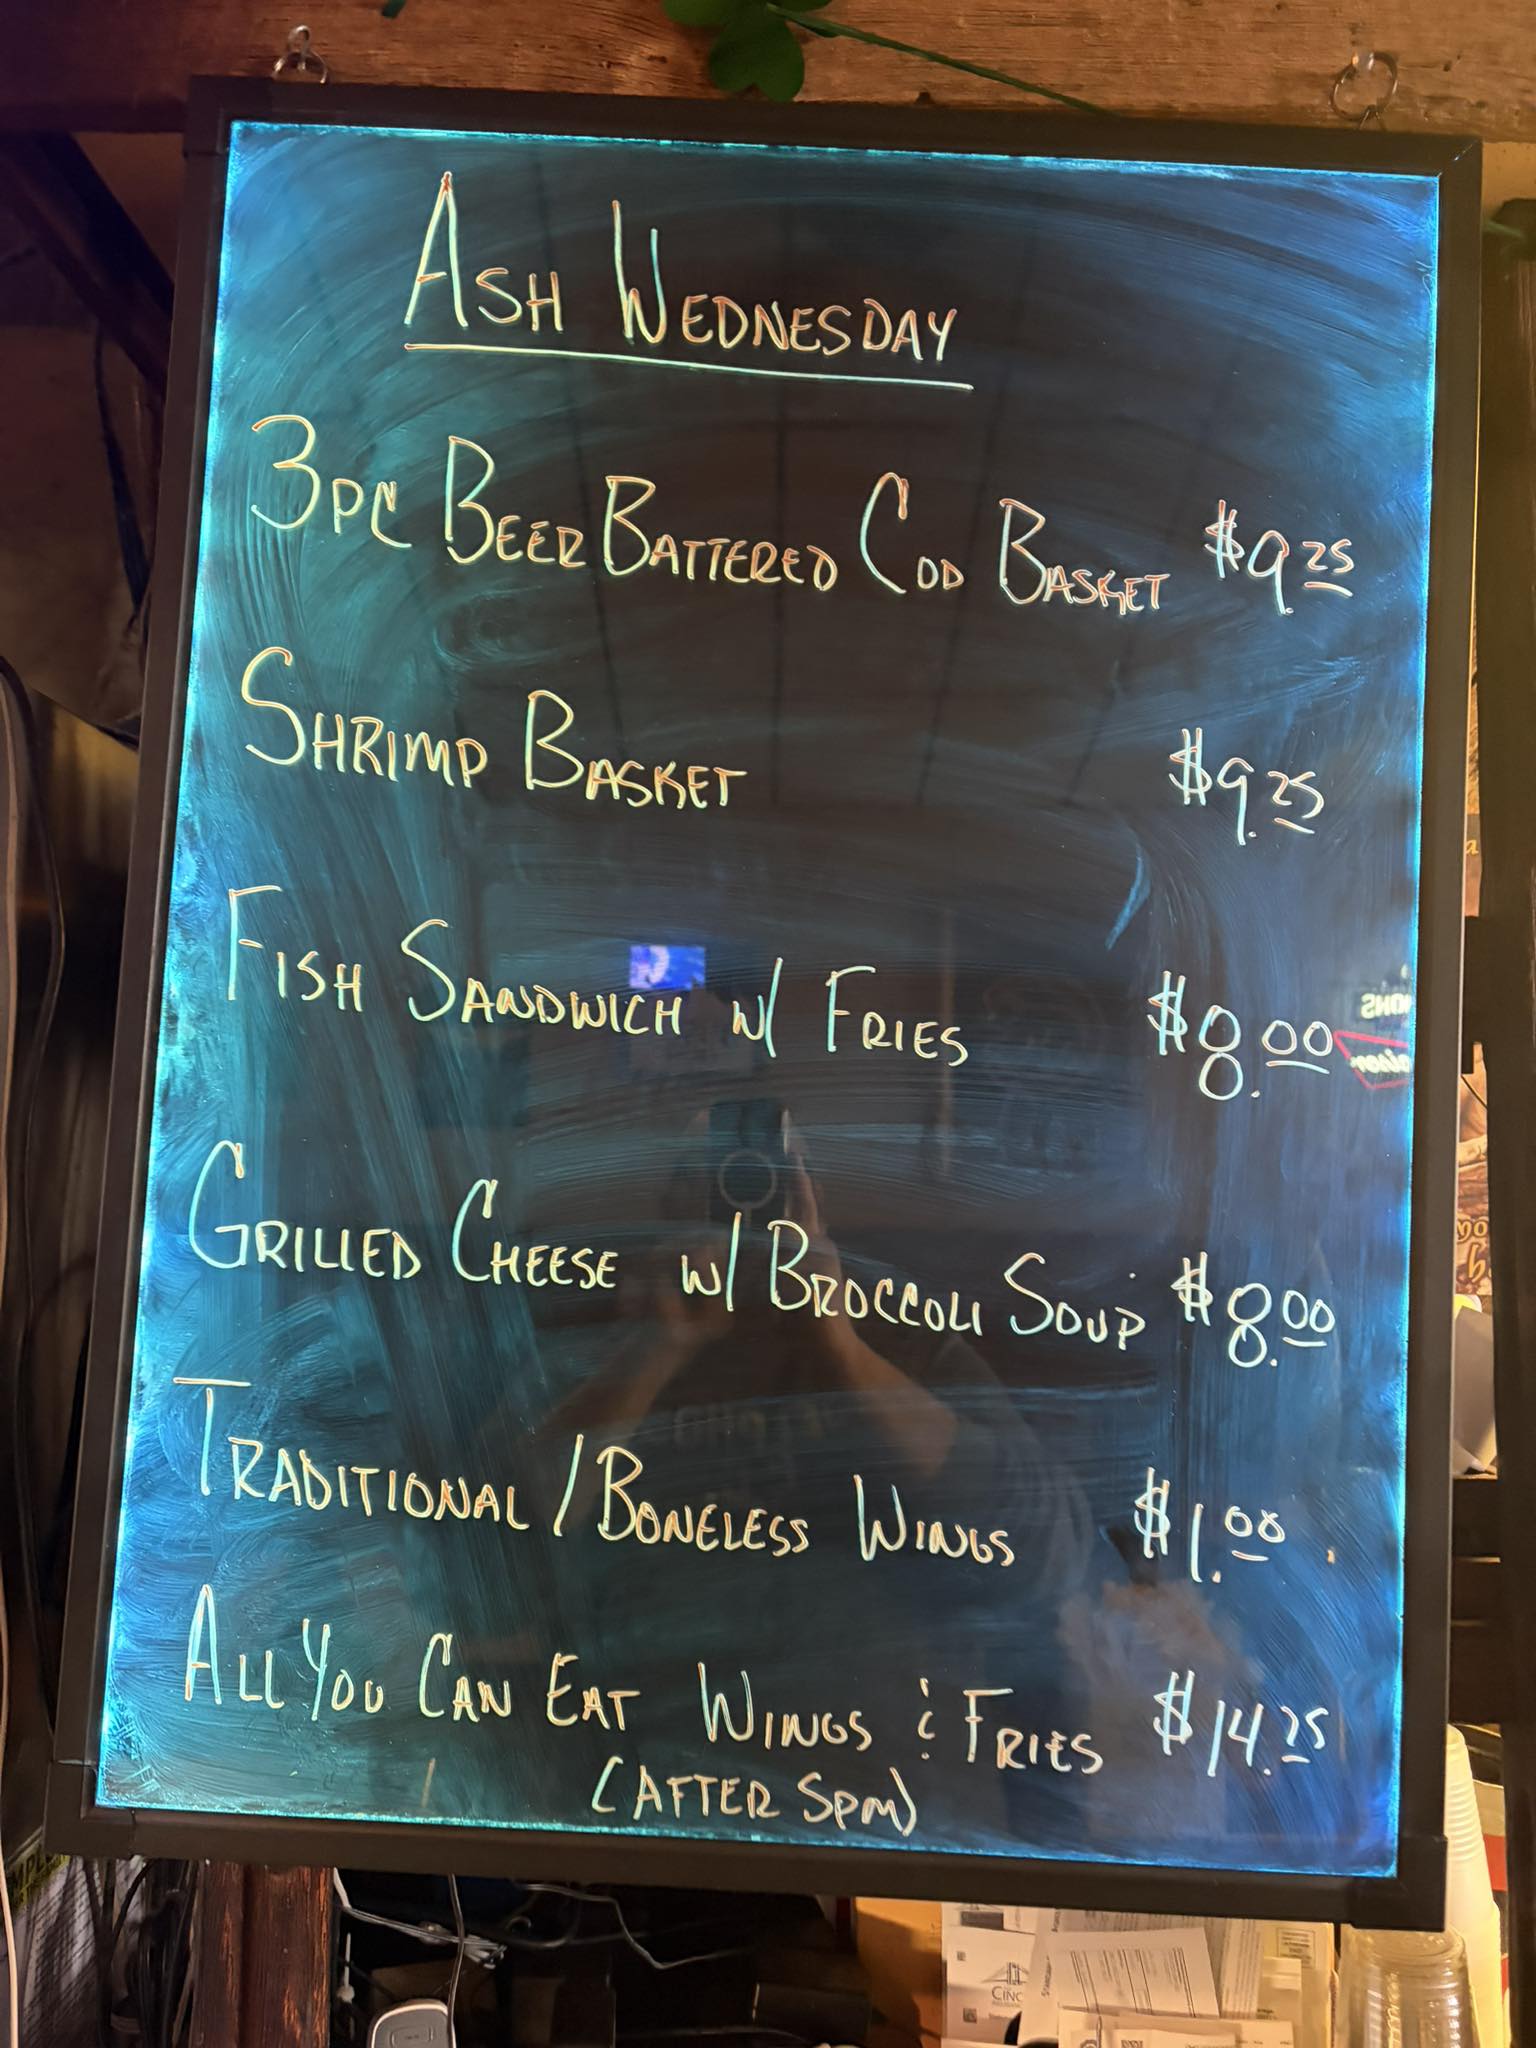 ASH WEDNESDAY
3PC BEER BATTERED COD BASKET $9.25
SHRIMP BASKET $9.25
FISH SANDWICH W/ FRIES $8.00
GRILLED CHEESE W/ BROCCOLI SOUP $8.00
TRADITIONAL / BONELESS WINGS $1.00
ALL YOU CAN EAT WINGS & FRIES $14.25
(AFTER 5PM)
CINC